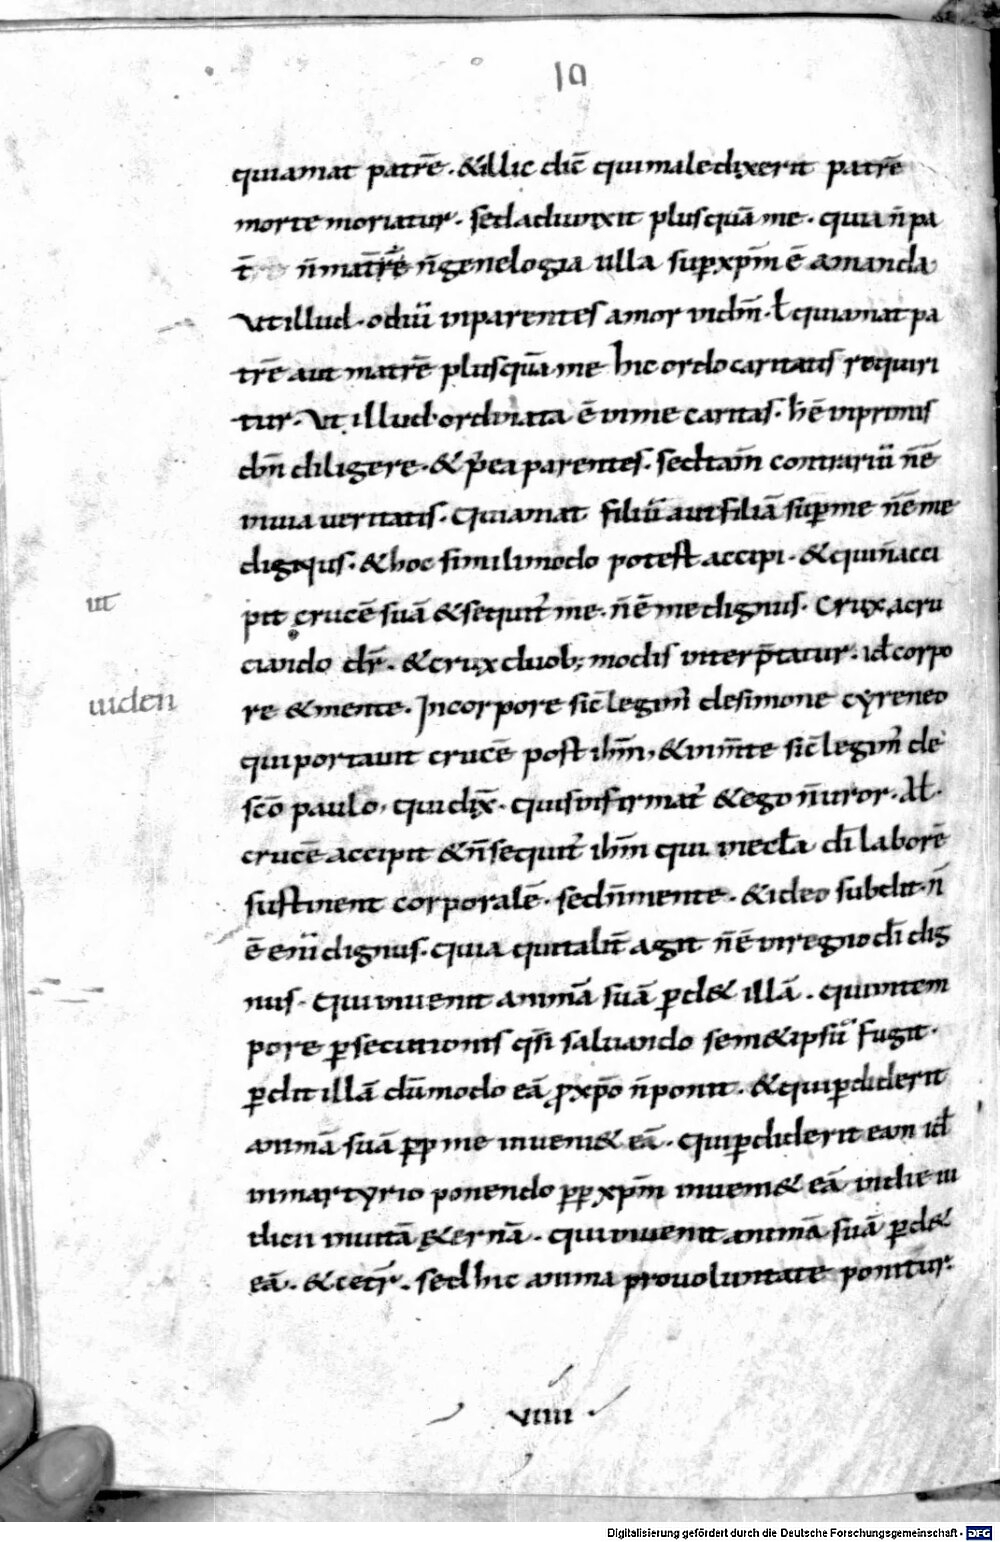 10
qui amat patrē · & illic dic̄ qui maledixerit patrē
morte moriatur · sed adiunxit plus quā me · quia n̄ pa
t̄ n̄ matrē n̄ genelogia ulla sup xp̄m ē amanda
Ut illud · odiū in parentes amor in dm̄ · ł qui amat pa
trē aut matrē plus quā me hic ordo caritatis requiri
tur · Ut illud · ordinata ē in me caritas · h̄ ē inprimis
dm̄ diligere · & p̄ea parentes · sed tam̄ contrariū n̄ ē
in uia ueritatis · Qui amat filiū aut filiā sup me n̄ ē me
dignus · & hoc simili modo potest accipi · & qui n̄ acci
ut
pit crucē suā & sequit̄ me · n̄ ē me dignus · Crux a cru
ciando dr̄ · & crux duob; modis interp̄tatur · id corpo
re & mente · In corpore sic̄ legim̄ de simone cyreneo
uiden
qui portauit crucē post ihm̄, & in m̄te sic̄ legim̄ de
sc̄o paulo, qui dix̄ · quis infirmat̄ & ego n̄ uror · Al̄ ·
crucē accipit & n̄ sequit̄ ihm̄ qui in eccl̄a dī laborē
sustinent corporalē · sed n̄ mente · & ideo subdit · n̄
ē enī dignus · quia qui talit̄ agit n̄ ē in regno dī dig
nus · Qui inuenit animā suā pd& illā · qui in tem
pore psecutionis qsī saluando sem&ipsū fugit ·
pdit illā dū modo eā p xp̄o n̄ ponit · & qui pdiderit
animā suā pp me inueni& eā · qui pdiderit eam id
in martyrio ponendo pp xp̄m inueni& eā in die iu
dicii in uitā &ernā · qui inuenit animā suā pd&
eā · & cetr̄ · sed hic anima pro uoluntate ponitur ·
VIIII
Digitalisierung gefördert durch die Deutsche Forschungsgemeinschaft - DFG